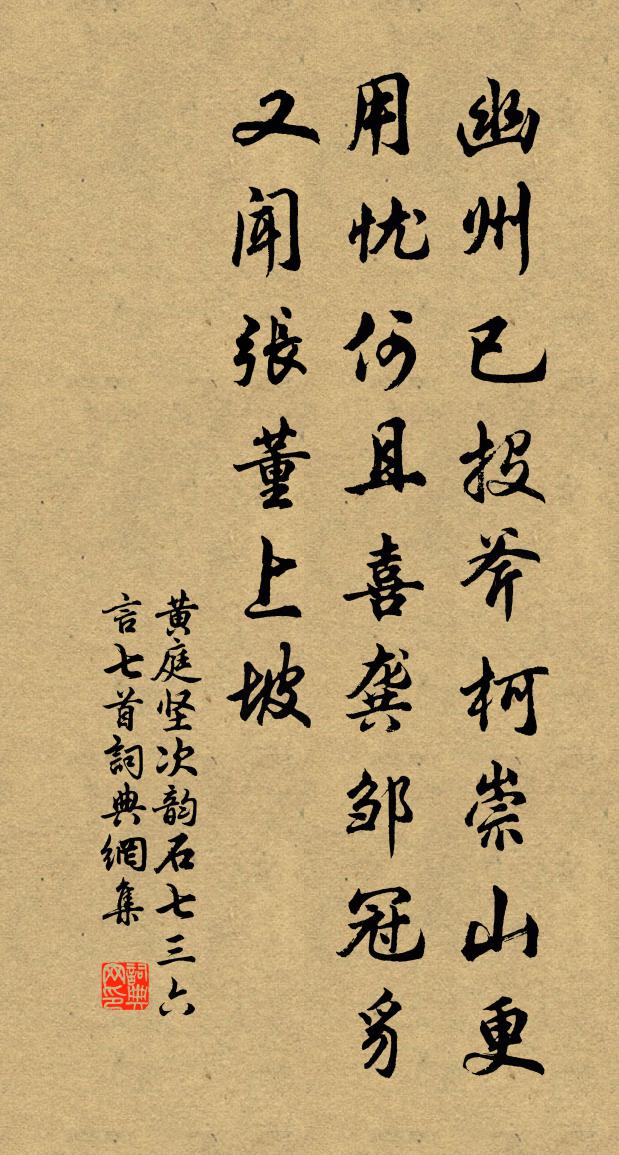 幽州已投斧柯崇山更
用忧何且喜龚邹冠豸
又闻張董上坡
黄庭坚次韵石七三六
言七首詞典網集
詞典网印